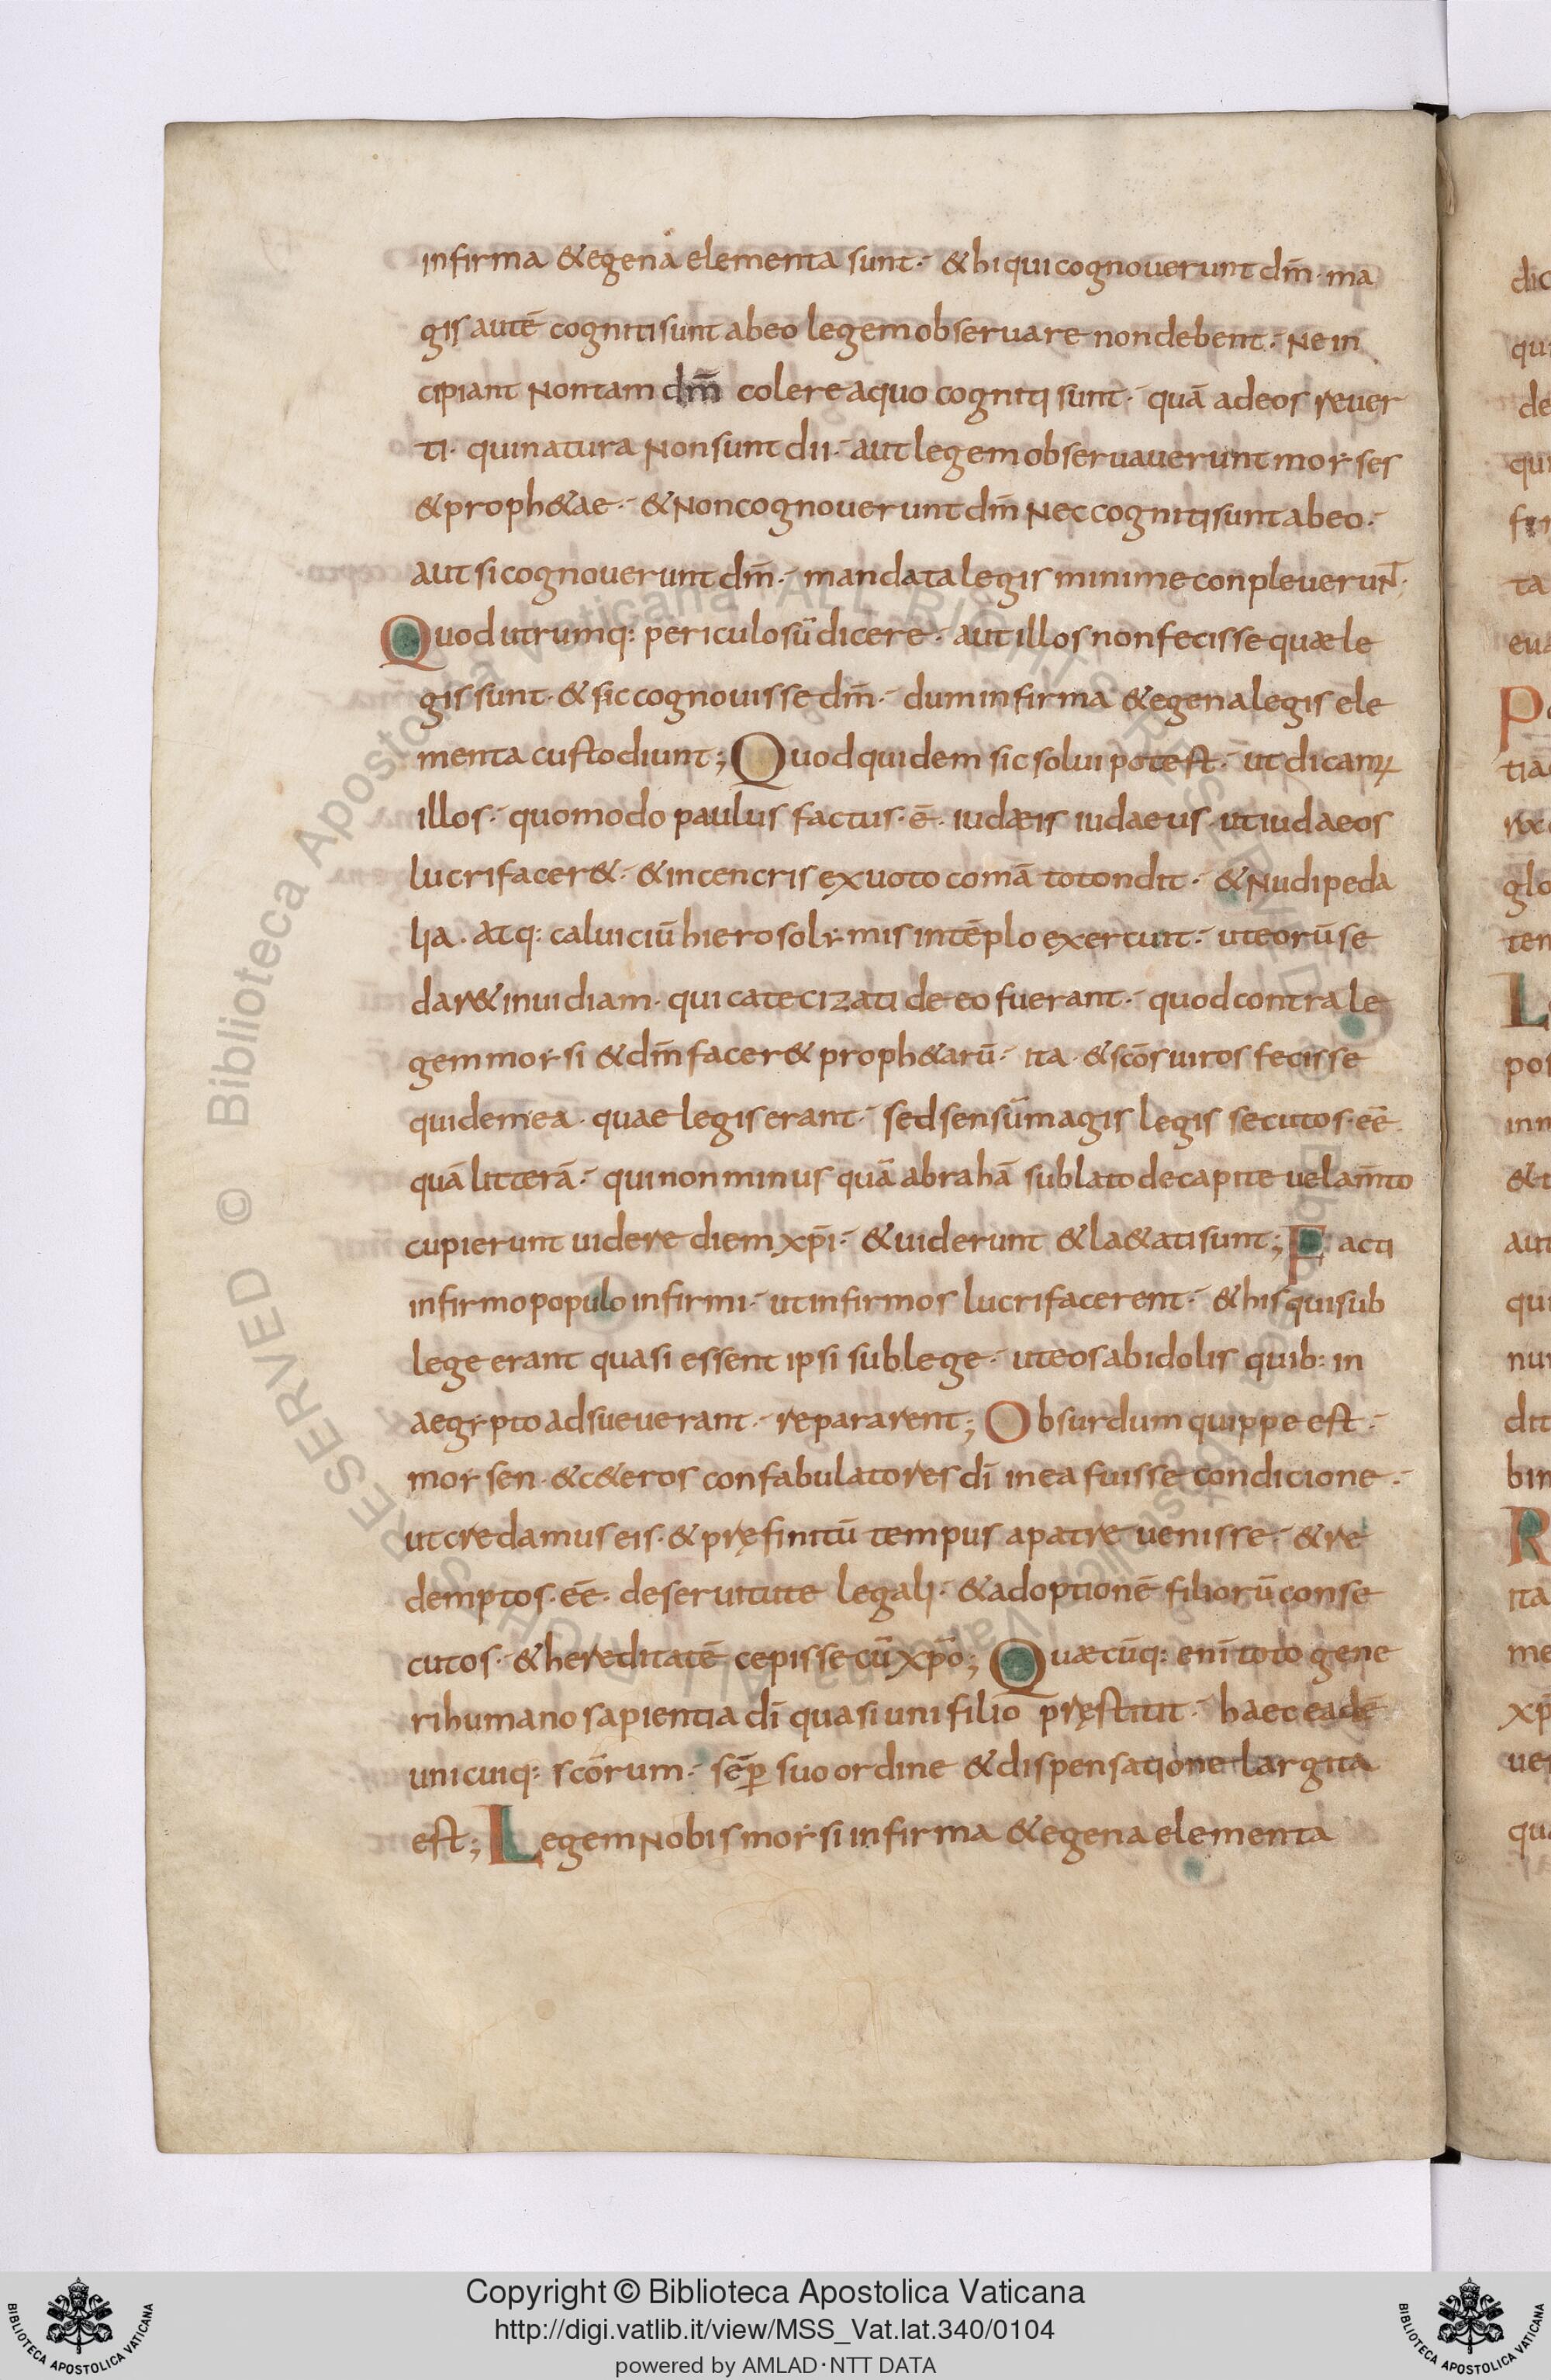 infirma & egena elementa sunt· & hi qui cognouerunt dm̄· ma
gis autē cogniti sunt ab eo legem obseruare non debent· Ne in
cipiant Non tam dm̄ colere a quo cogniti sunt· quā ad eos reuer
ti· qui natura Non sunt dii· aut legem obseruauerunt moyses
& proph&ae· & Non cognouerunt dm̄ Nec cogniti sunt ab eo·
aut si cognouerunt dm̄· mandata legis minime conpleuerunt·
Quod utrumq: periculosū dicere· aut illos non fecisse quæ le
gis sunt· & sic cognouisse dm̄· dum infirma & egena legis ele
menta custodiunt; Quod quidem sic solui potest· ut dicamus
illos· quomodo paulus factus· ē· iudæis iudaeus· ut iudaeos
lucrifacer&· & in cencris ex uoto comā totondit· & Nudipeda
lia· atq: caluiciū hierosolymis in tēplo exercuit· ut eorū se
dar& inuidiam· qui catecizati de eo fuerant· quod contra le
gem moysi & dm̄ facer& proph&arū· ita· & scōs uiros fecisse
quidem ea· quae legis erant· sed sensū magis legis secutos· eē
quā litterā· qui non minus quā abrahā sublato de capite uelam̄to
cupierunt uidere diem xp̄i· & uiderunt & la&ati sunt; Facti
infirmo populo infirmi· ut infirmos lucrifacerent· & his qui sub
lege erant quasi essent ipsi sub lege· ut eos ab idolis quib: in
aegypto adsueuerant· repararent; Obsurdum quippe est·
moysen· & c&eros confabulatores dī in ea fuisse condicione·
ut credamus eis· & pręfinitū tempus a patre uenisse· & re
demptos· eē· de seruitute legali· & adoptionē filiorū conse
cutos· & hereditatē cepisse cū xp̄o; Quæcūq: enī toto gene
ri humano sapientia dī quasi uni filio pręstitit· haec eadē
unicuiq: scōrum· sēp suo ordine & dispensatione largita
est; Legem Nobis moysi infirma & egena elementa
Copyright © Biblioteca Apostolica Vaticana
http://digi.vatlib.it/view/MSS_Vat.lat.340/0104
powered by AMLAD·NTT DATA